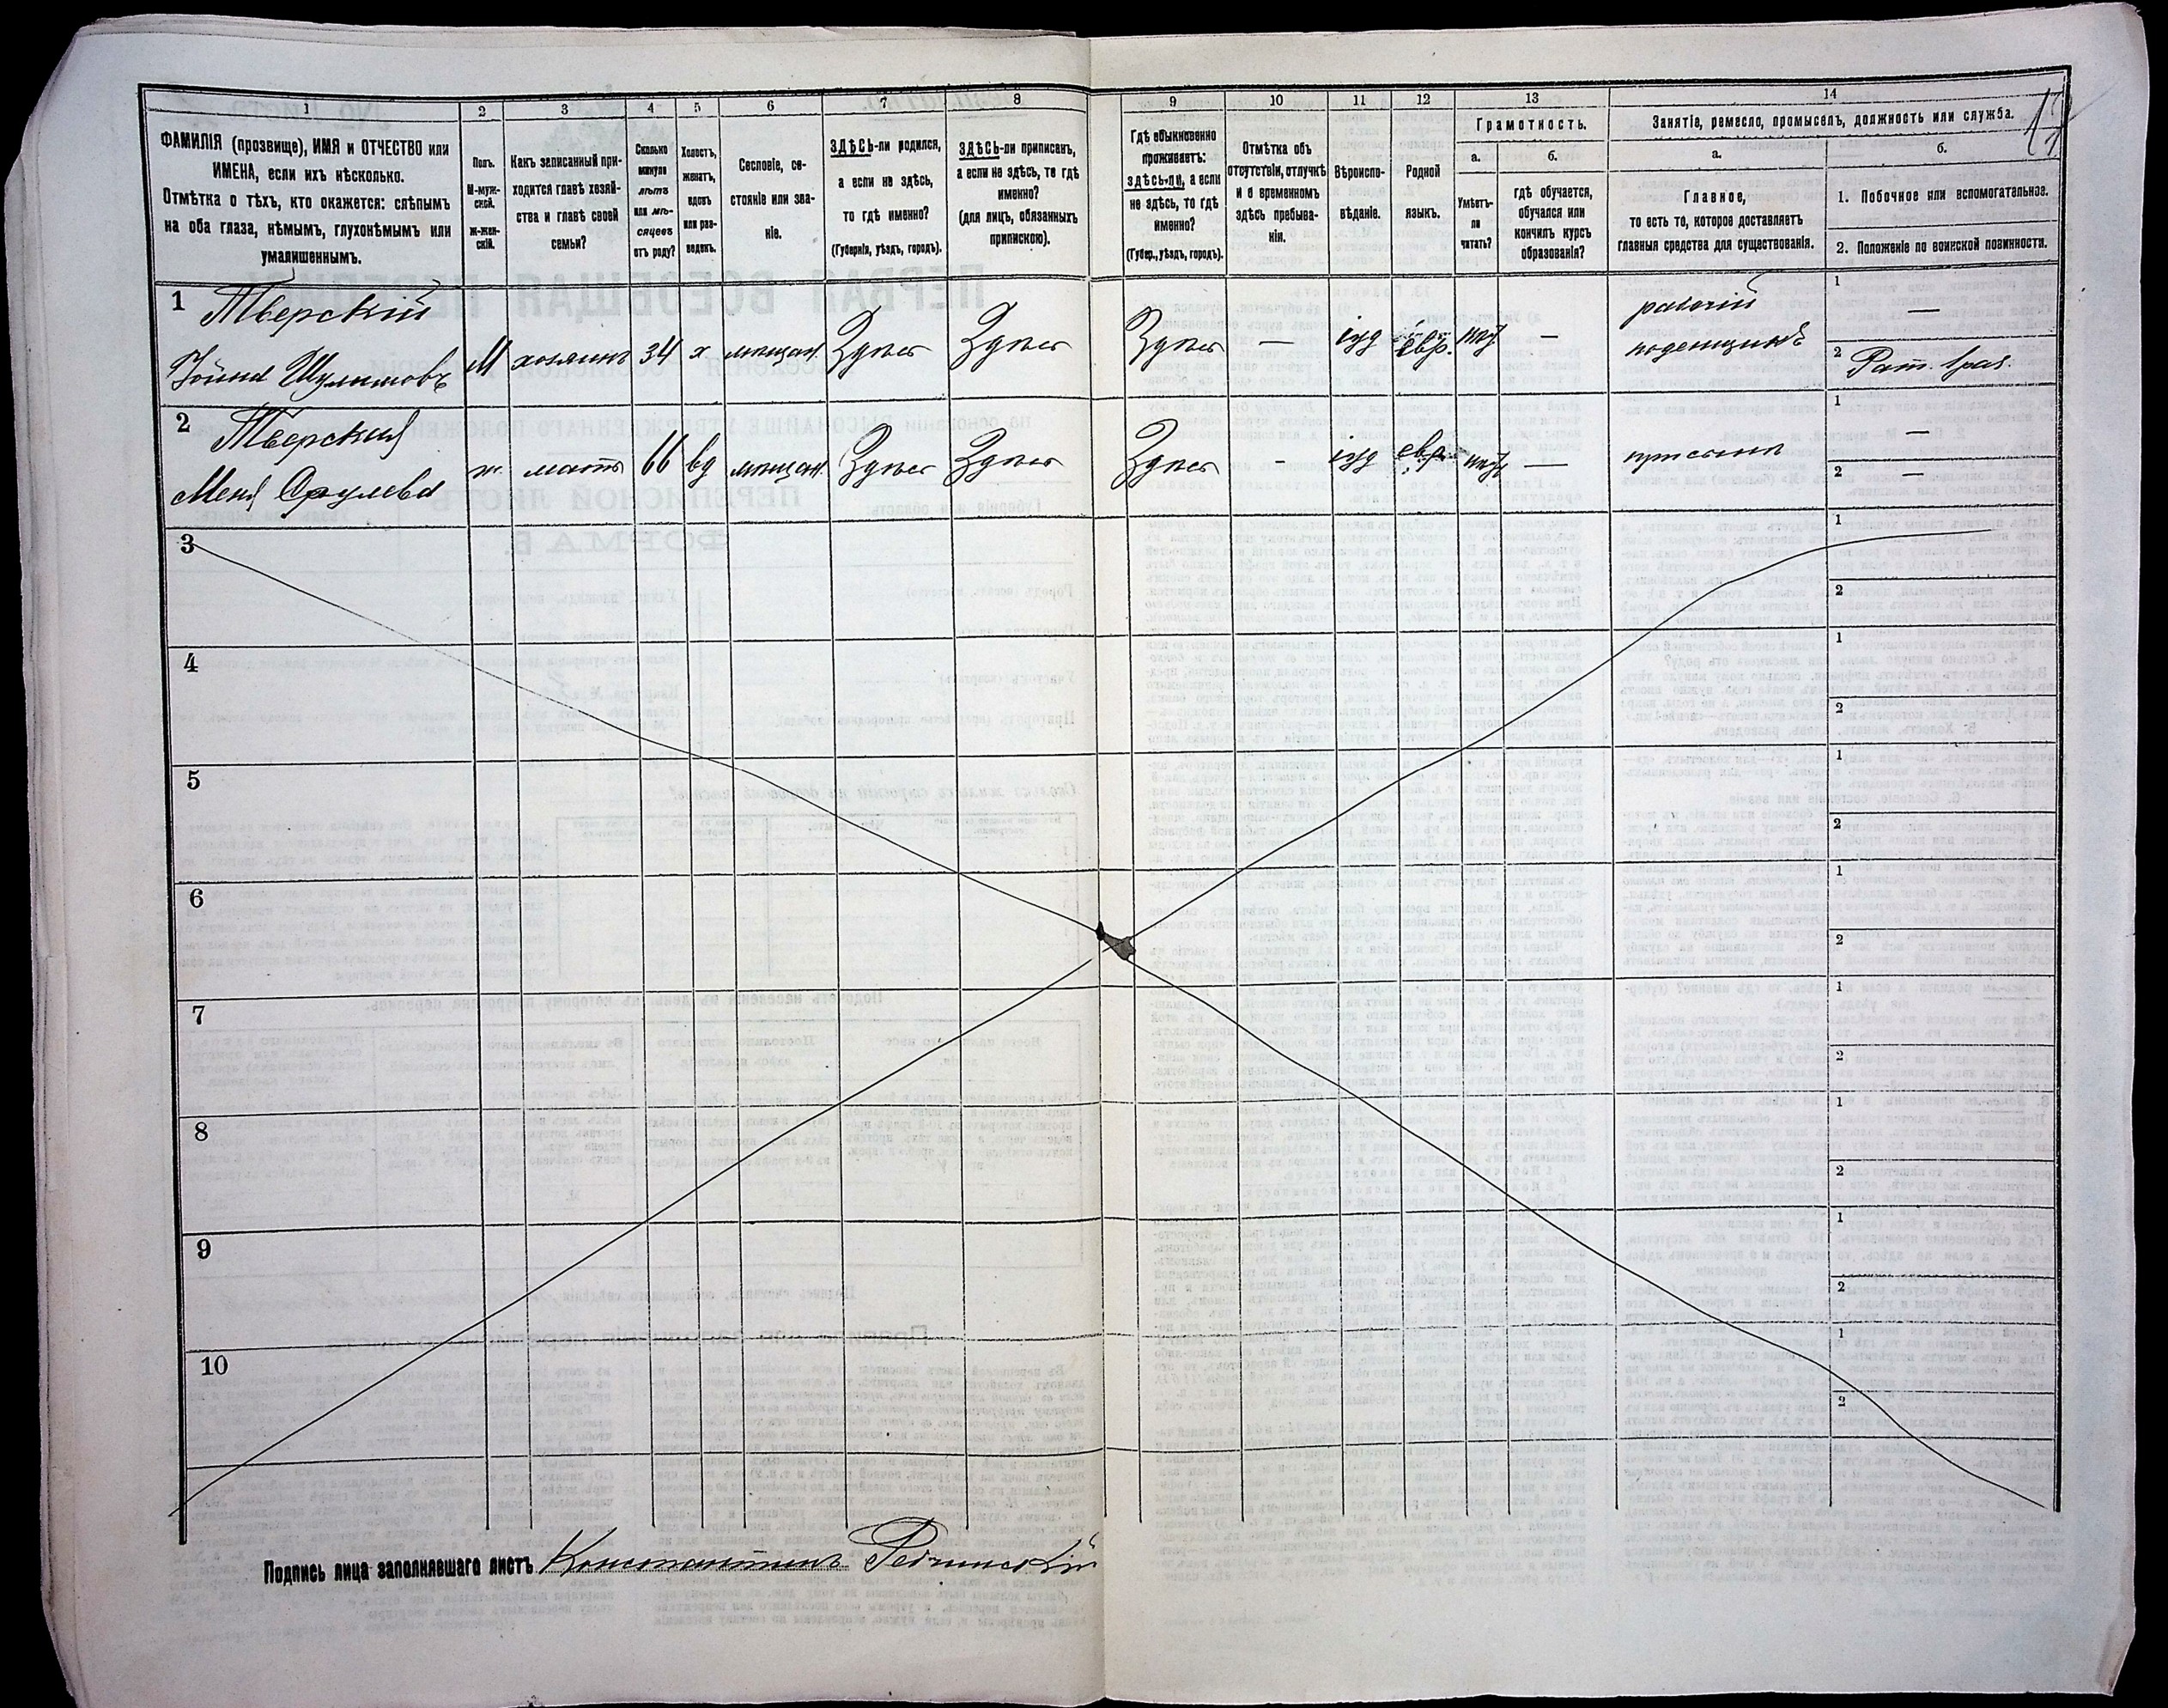 1 2 3 4 5 6 7 8 9 10 11 12 13 14
ФАМИЛІЯ (прозвище), ИМЯ и ОТЧЕСТВО или
ИМЕНА, если ихъ нѣсколько.
Отмѣтка о тѣхъ, кто окажется: слѣпымъ
на оба глаза, нѣмымъ, глухонѣмымъ или
умалишеннымъ.
Полъ.
М-муж-
ской.
Ж-жен-
скій.
Какъ записанный при-
ходится главѣ хозяй-
ства и главѣ своей
семьи?
Сколько
минуло
лѣтъ
или мѣ-
сяцевъ
отъ роду?
Холостъ,
женатъ,
вдовъ
или раз-
веденъ.
Сословіе, со-
стояніе или зва-
ніе.
ЗДѢСЬ-ли родился,
а если не здѣсь,
то гдѣ именно?
(Губернія, уѣздъ, городъ).
ЗДѢСЬ-ли приписанъ,
а если не здѣсь, то гдѣ
именно?
(для лицъ, обязанныхъ
припискою).
Гдѣ обыкновенно
проживаетъ:
здѣсь-ли, а если
не здѣсь, то гдѣ
именно?
(Губер., уѣздъ, городъ).
Отмѣтка объ
отсутствіи, отлучкѣ
и о временномъ
здѣсь пребыва-
ніи.
Вѣроиспо-
вѣданіе.
Родной
языкъ.
Грамотность.
а.
Умѣетъ-
ли
читать?
б.
гдѣ обучается,
обучался или
кончилъ курсъ
образованія?
Занятіе, ремесло, промыселъ, должность или служба.
а.
Главное,
то есть то, которое доставляетъ
главныя средства для существованія.
б.
1. Побочное или вспомогательное.
2. Положеніе по воинской повинности.
1 Тверскій
М хозяинъ 34 х мѣщан. Здѣсь Здѣсь Здѣсь — іуд евр. нѣт —
рабочій
поденщикъ
1 —
2 Рат. 1 раз.
2 Тверская
ж. мать 66 вд мѣщан. Здѣсь Здѣсь Здѣсь - іуд евр. нѣт —
1 —
2 —
3 1
2
4 1
2
5 1
2
6 1
2
7 1
2
8 1
2
9 1
2
10 1
2
Подпись лица заполнявшаго листъ Константинъ